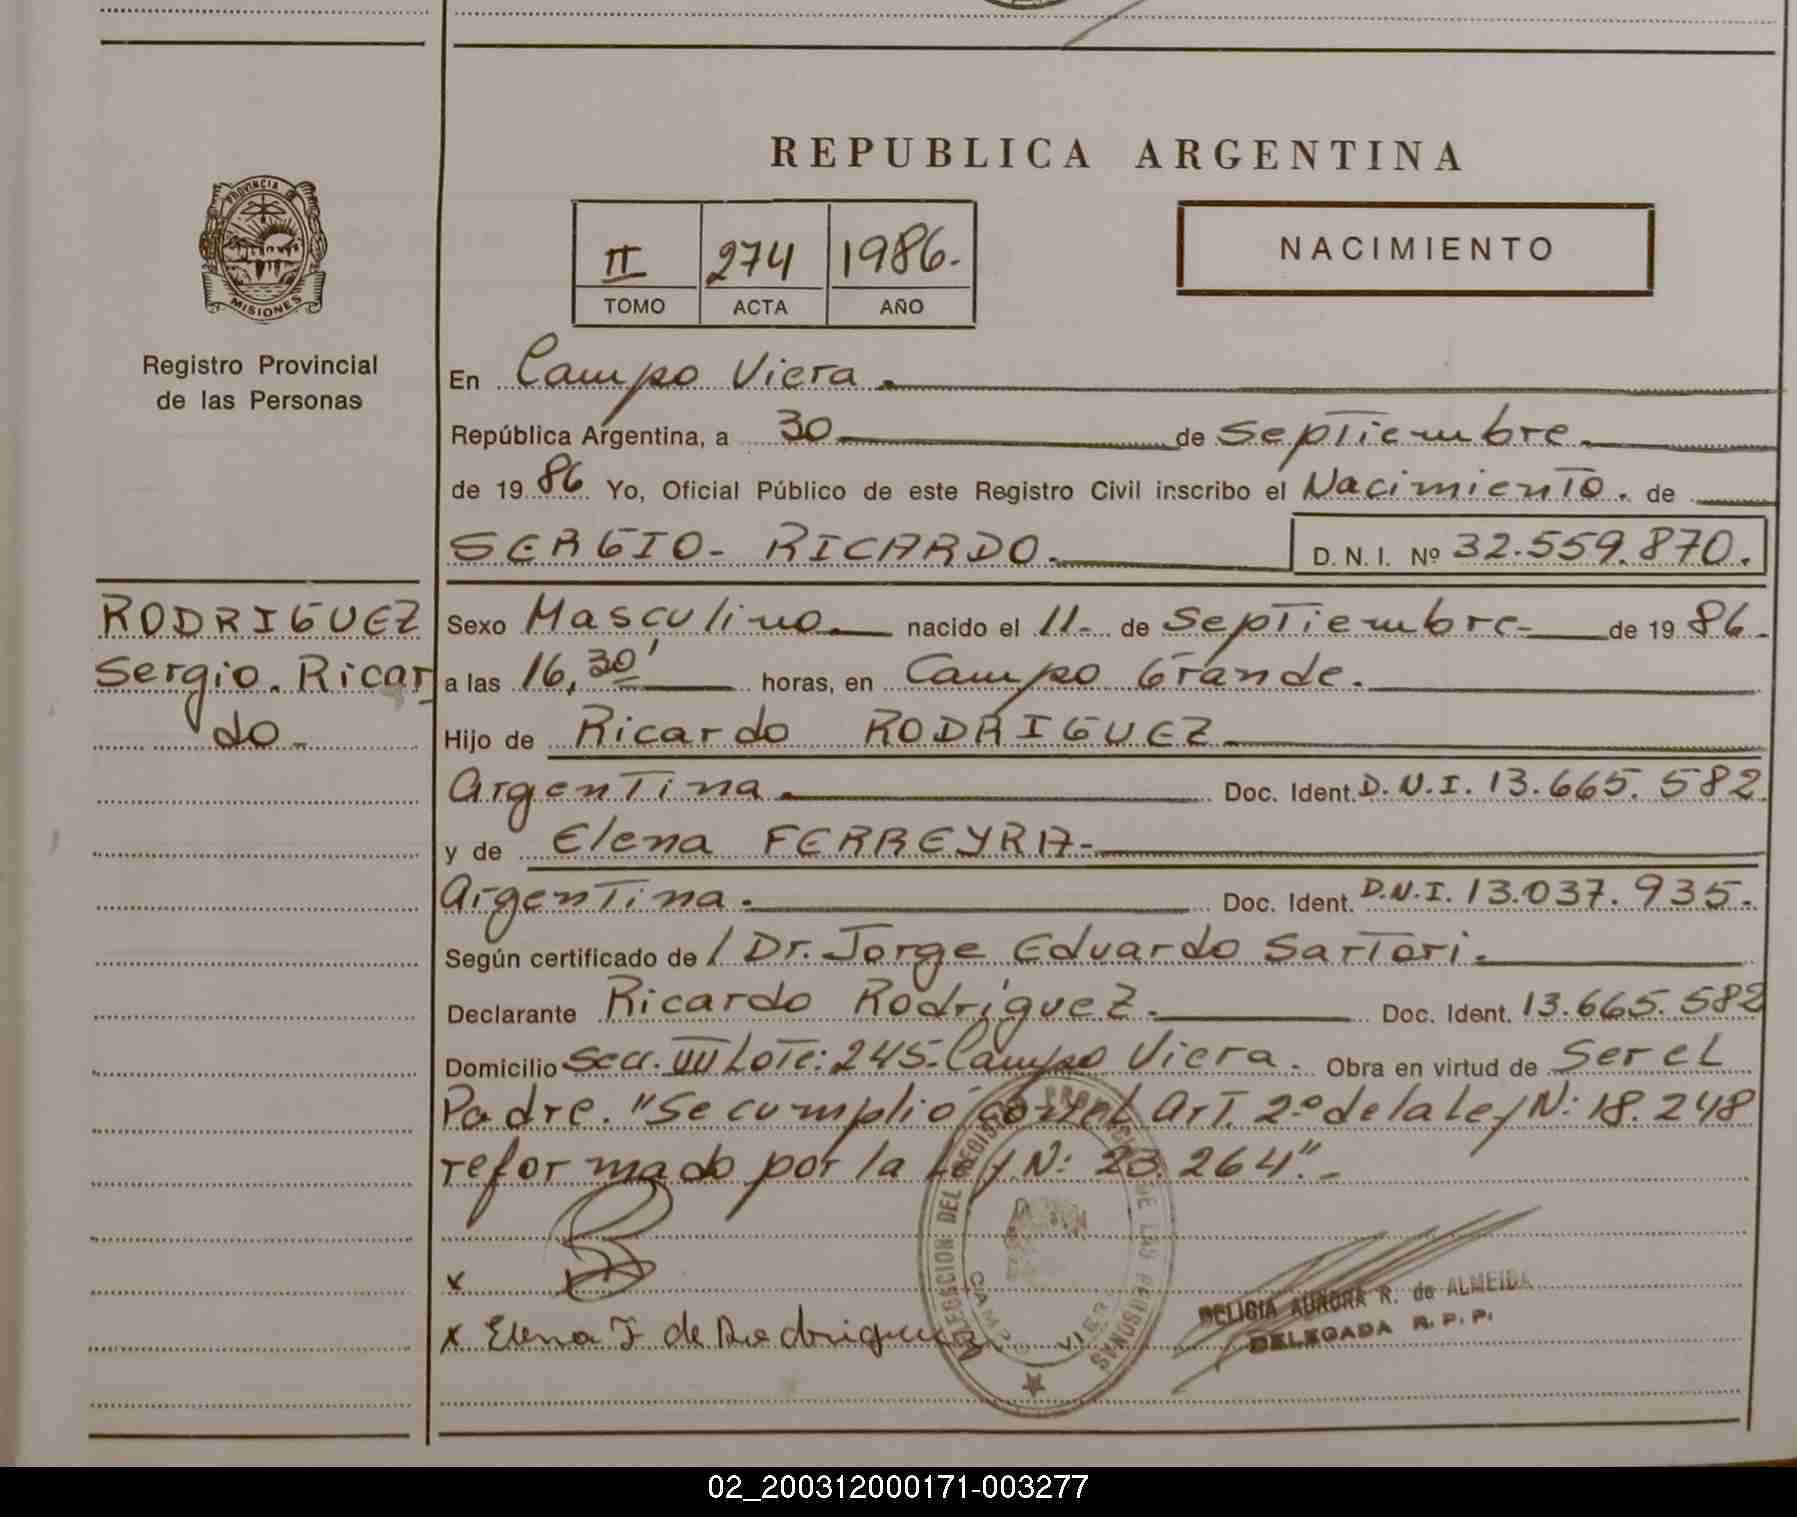 REPUBLICA ARGENTINA
PROVINCIA DE
MISIONES
Registro Provincial
de las Personas
II 274 1986.-
TOMO ACTA AÑO
NACIMIENTO
En Campo Viera.
República Argentina, a 30 de Septiembre.
de 1986 Yo, Oficial Público de este Registro Civil inscribo el Nacimiento. de
SERGIO- RICARDO. D. N. I. Nº 32.559.870.
RODRIGUEZ
Sergio. Ricar
do-
Sexo Masculino. nacido el 11. de Septiembre- de 1986.-
a las 16,30' horas, en Campo Grande.
Hijo de Ricardo RODRIGUEZ
Argentina. Doc. Ident. D.N.I. 13.665.582
y de Elena FERREYRA-
Argentina. Doc. Ident. D.N.I. 13.037.935.-
Según certificado de / Dr. Jorge Eduardo Sartori.
Declarante Ricardo Rodriguez. Doc. Ident. 13.665.582
Domicilio Secc. VIII Lote: 245- Campo Viera. Obra en virtud de Ser el
Padre. "Se cumplió con el Art. 2º de la Ley N: 18.248
reformado por la Ley N: 23.264".-
x
x Elena F de Rodriguez
DELEGACION DEL REGISTRO PROVINCIAL DE LAS PERSONAS
CAMPO VIERA
DELIGIA AURORA R. de ALMEIDA
DELEGADA R. P. P.
02_200312000171-003277